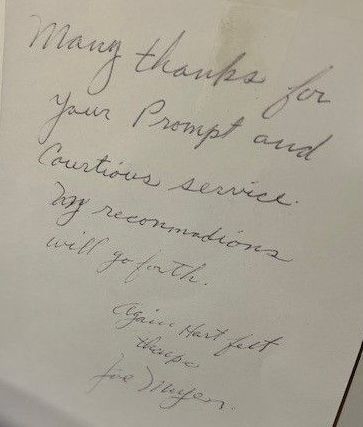 Many thanks for
your Prompt and
Courtious service.
My reconmadions
will go forth.
Again Hart felt
thanps
Joe Meyer.